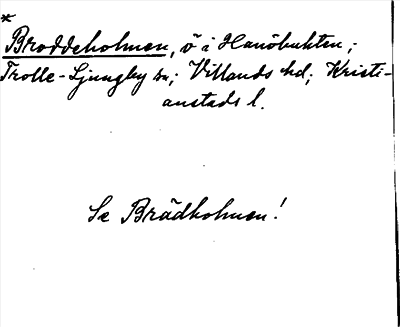 *
Broddeholmen, ö i Hanöbukten;
Trolle-Ljungby sn; Villands hd; Kristi-
anstads l.
Se Brädholmen!